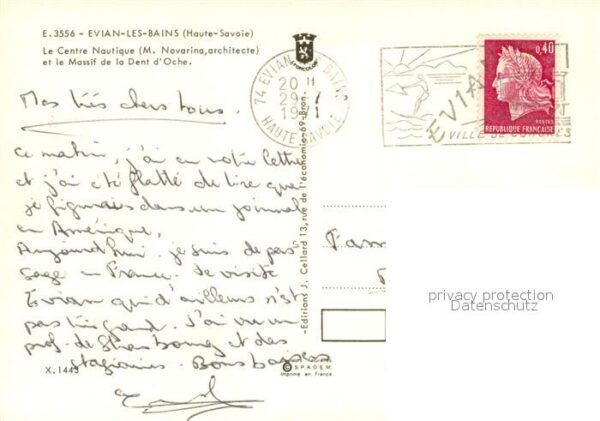 E.3556 - EVIAN-LES-BAINS (Haute-Savoie)
Le Centre Nautique (M. Novarina,architecte)
et le Massif de la Dent d'Oche.
74 EVIAN BAINS
20 H
29-7
1971
HAUTE SAVOIE
EVIAN
VILLE DE CONGRES
0,40
POSTES
REPUBLIQUE FRANÇAISE
Mes très chers tous.
Ce matin, j'ai eu votre lettre
et j'ai été flatté de lire que
je figurais dans un journal
en Amérique.
Aujourd'hui je suis de pas
sage en France. Je visite
Evian qui d'ailleurs n'est
pas très grand. J'ai vu un
prof. de Strasbourg et des
stagiaires. Bons baisers
X.1443
-Editions J. Cellard 13, rue de l'économie-69-Bron-
Fam
privacy protection
Datenschutz
© S.P.A.D.E.M.
Imprimé en France